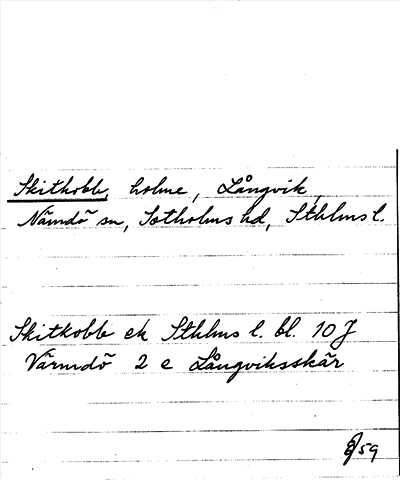 Skitkobb, holme, Långvik,
Nämdö sn, Sotholms hd, Sthlms l.
Skitkobb ek Sthlms l. bl. 10 J
Värmdö 2 e Långviksskär
59